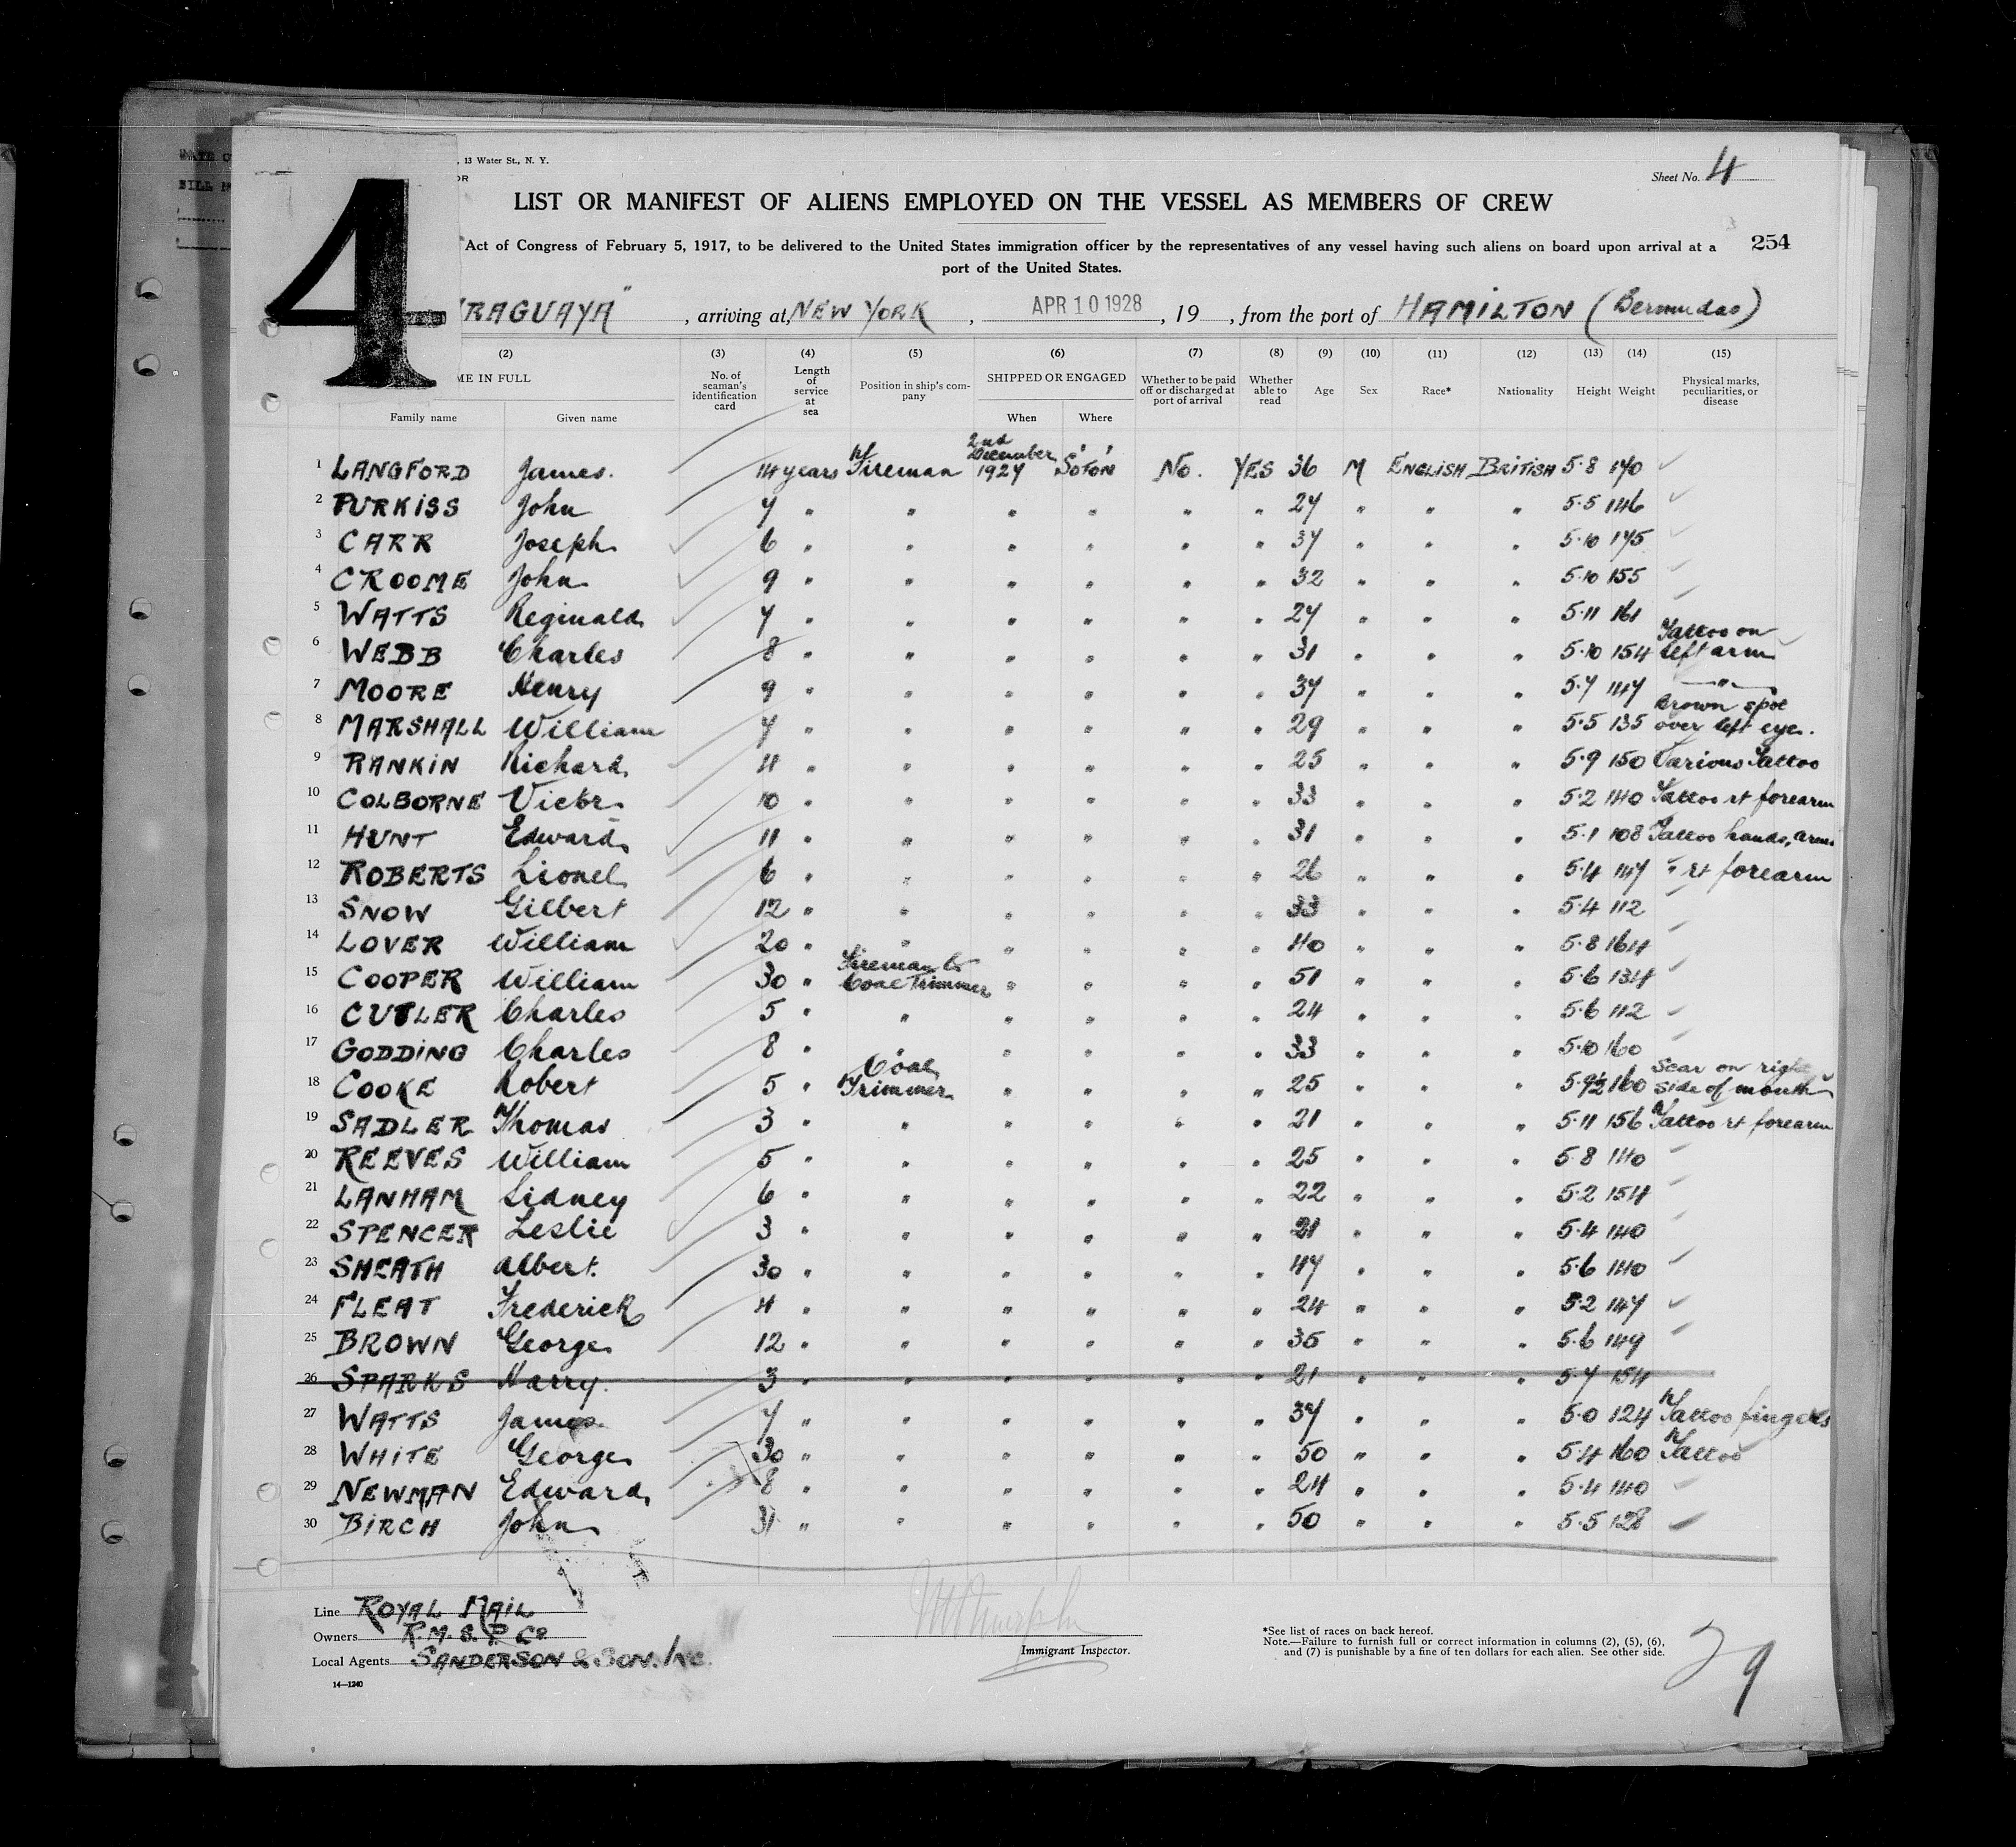 4
, 13 Water St., N. Y.
OR
Sheet No. 4
LIST OR MANIFEST OF ALIENS EMPLOYED ON THE VESSEL AS MEMBERS OF CREW
Act of Congress of February 5, 1917, to be delivered to the United States immigration officer by the representatives of any vessel having such aliens on board upon arrival at a 254
port of the United States.
RAGUAYA" , arriving at NEW YORK , APR 10 1928 , 19 , from the port of HAMILTON (Bermudas)
(2) (3) (4) (5) (6) (7) (8) (9) (10) (11) (12) (13) (14) (15)
ME IN FULL No. of seaman's identification card Length of service at sea Position in ship's company SHIPPED OR ENGAGED Whether to be paid off or discharged at port of arrival Whether able to read Age Sex Race* Nationality Height Weight Physical marks, peculiarities, or disease
Family name Given name When Where
1 LANGFORD James. 14 years Fireman 2nd December 1927 So'ton No. YES 36 M ENGLISH BRITISH 5·8 170
2 PURKISS John 7 " " " " " " 27 " " " 5·5 146
3 CARR Joseph 6 " " " " " " 37 " " " 5·10 175
4 CROOME John 9 " " " " " " 32 " " " 5·10 155
5 WATTS Reginald 7 " " " " " " 27 " " " 5·11 161
6 WEBB Charles 8 " " " " " " 31 " " " 5·10 154 Tattoo on left arm
7 MOORE Henry 9 " " " " " " 37 " " " 5·7 147 "
8 MARSHALL William 7 " " " " " " 29 " " " 5·5 135 Brown spot over left eye.
9 RANKIN Richard 4 " " " " " " 25 " " " 5·9 150 Various Tattoo
10 COLBORNE Victor 10 " " " " " " 33 " " " 5·2 140 Tattoo rt forearm
11 HUNT Edward 11 " " " " " " 31 " " " 5·1 108 Tattoo hands, arms
12 ROBERTS Lionel 6 " " " " " " 26 " " " 5·4 147 " rt forearm
13 SNOW Gilbert 12 " " " " " " 33 " " " 5·4 112
14 LOVER William 20 " " " " " " 40 " " " 5·8 164
15 COOPER William 30 " Fireman & Coal Trimmer " " " " 51 " " " 5·6 134
16 CUTLER Charles 5 " " " " " " 24 " " " 5·6 112
17 GODDING Charles 8 " " " " " " 33 " " " 5·10 160
18 COOKE Robert 5 " Coal Trimmer " " " " 25 " " " 5·9½ 160 Scar on right side of mouth
19 SADLER Thomas 3 " " " " " " 21 " " " 5·11 156 Tattoo rt forearm
20 REEVES William 5 " " " " " " 25 " " " 5·8 140
21 LANHAM Sidney 6 " " " " " " 22 " " " 5·2 154
22 SPENCER Leslie 3 " " " " " " 21 " " " 5·4 140
23 SHEATH Albert. 30 " " " " " " 47 " " " 5·6 140
24 FLEAT Frederick 4 " " " " " " 24 " " " 5·2 147
25 BROWN George 12 " " " " " " 35 " " " 5·6 149
26 SPARKS Harry. 3 " " " " " " 21 " " " 5·7 154
27 WATTS James 7 " " " " " " 37 " " " 5·0 124 Tattoo fingers
28 WHITE George 30 " " " " " " 50 " " " 5·4 160 Tattoo
29 NEWMAN Edward 8 " " " " " " 24 " " " 5·4 140
30 BIRCH John 31 " " " " " " 50 " " " 5·5 128
Line ROYAL MAIL
Owners R.M.S.P. Co.
Local Agents SANDERSON & SON. INC.
14—1240
Immigrant Inspector.
*See list of races on back hereof.
Note.—Failure to furnish full or correct information in columns (2), (5), (6),
and (7) is punishable by a fine of ten dollars for each alien. See other side.
29